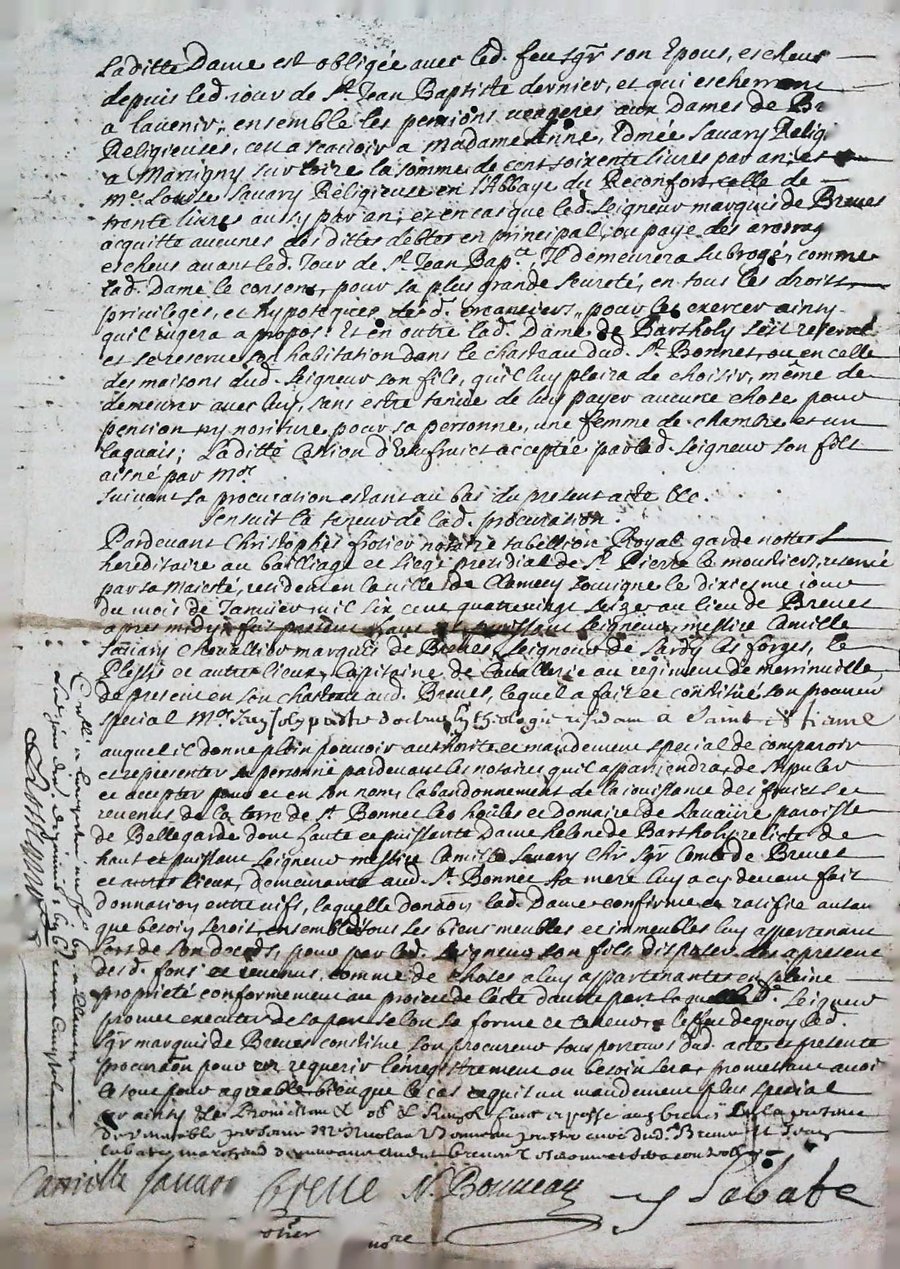 Laditte Dame est obligée avec led. feu sgr son Epous, escheus
depuis led. jour de St. Jean Baptiste dernier, et qui escherront
a lavenir, ensemble les pensions viageres aux Dames de Bre
Religieuses, cest a scavoir a Madame Anne, Edmée Savary Relig
a Marsigny sur loire la somme de cent soixente livres par an, et
me. Louise Savary Réligieuse en l'Abbaye du Reconfort, celle de
trente livres aussy par an; et en cas que led. Seigneur marquis de Breves
acquitte aucunes des dittes debtes en principal, ou paye des arerag
escheus avant led. Jour de St. Jean Bapte, Il demeurera subrogé, comme
lad. Dame le consent, pour sa plus grande seureté, en tous les droits,
privileges, et hypoteques des d. creanciers, pour les exercer ainsy
quil jugera a propos. Et en outre lad. Dame de Bartholy s'est reservé
et se reserve son habitation dans le chasteau dud. St. Bonnet, ou en celle
des maisons dud. Seigneur son fils, quil luy plaira de choisir, même de
demeurer avec luy, sans estre tenue de luy payer aucune chose pour
pension ny noriture, pour sa personne, une femme de chambre et un
laquais; Laditte cession d'Usufruict acceptée par led. Seigneur son fils
aisné par Mor.
suivant sa procuration estant au bas du present acte &c.
Sensuit la teneur de lad. procuration.
Pardevant Christophe frotier notaire tabellion Royal garde nottes
hereditaire au bailliage et siege presidial de St. Pierre le moustier, reservé
par sa Majesté, resident en la ville de Clamecy soubsigné le dixiesme jour
du mois de Janvier mil six cent quatrevingt seize au lieu de Breves
apres midy, fut present haut et puissant Seigneur, messire Camille
Savary chevallier marquis de Breves, Seigneur de Sardy les forges, le
Plessis et autres lieux, Cappitaine de Cavallerie au regiment de
de present en son chasteau aud. Breves, lequel a fait et constitué son procureur
special Mor. prestre docteur en theologie residant a Saint Etienne
auquel il donne plein pouvoir authorité et mandement special de comparoir
et representer sa personne pardevant les notaires quil appartiendra, de stipuler
et accepter pour et en son nom labandonnement de la jouissance des fruicts et
revenus de la terre de St. Bonnet les hosles et domaine de paroisse
de Bellegarde dont haute et puissante Dame Helene de Bartholy relicte de
haut et puissant Seigneur messire Camille Savary chlr sgr Comte de Breves
et autres lieux, demeurante aud. St. Bonnet sa mere luy a cy devant fait
donnation entre vifs, laquelle donaon lad. Dame confirme et ratifie autant
que besoin seroit, ensemble tous les biens meubles et immeubles luy appertenant
lors de son decedz, pour par led. Seigneur son fils disposer des a present
des d. fons et revenus comme de choses a luy appartenantes en pleine
propriété conformement au projet de l'acte dautre part laquelle led. Seigneur
promet executer de sa part selon sa forme et teneur, a leffet dequoy led.
sgr marquis de Breves constitue son procureur tous porteurs dud. acte et presente
procuraon pour en requerir l'enregistrement ou besoin sera, promettant avoir
le tout pour agreable bien que le cas requit un mandement plus special
car ainsy &c. promettant &c. obl. &c. fait et passé aud Breves en la presence
de venerable personne Mr Nicolas Bonneau prestre curé dud. Breves et
Sabate marchand demeurant
Camille Savary Breve N. Bonneau J Sabate
notre